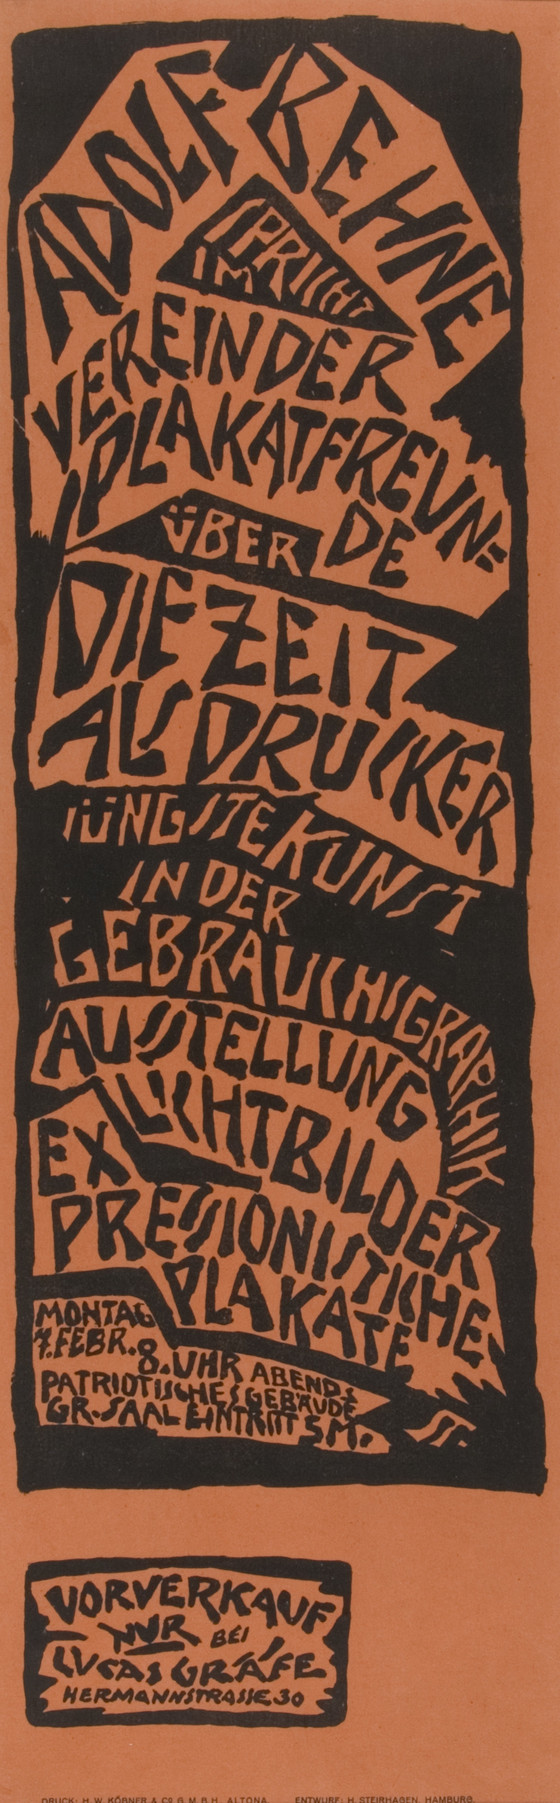 ADOLF BEHNE
SPRICHT
IM
VEREIN DER
PLAKATFREUN=
DE
ÜBER
DIE ZEIT
ALS DRUCKER
JÜNGSTE KUNST
IN DER
GEBRAUCHSGRAPHIK
AUSSTELLUNG
LICHTBILDER
EX
PRESSIONISTISCHE
PLAKATE
MONTAG
7. FEBR. 8. UHR ABENDS
PATRIOTISCHES GEBÄUDE
GR. SAAL EINTRITT 5 M.
VORVERKAUF
NUR BEI
LUCAS GRÄFE
HERMANNSTRASSE 30
DRUCK: H. W. KÖBNER & CO G. M. B. H. ALTONA. ENTWURF: H. STEIRHAGEN, HAMBURG.